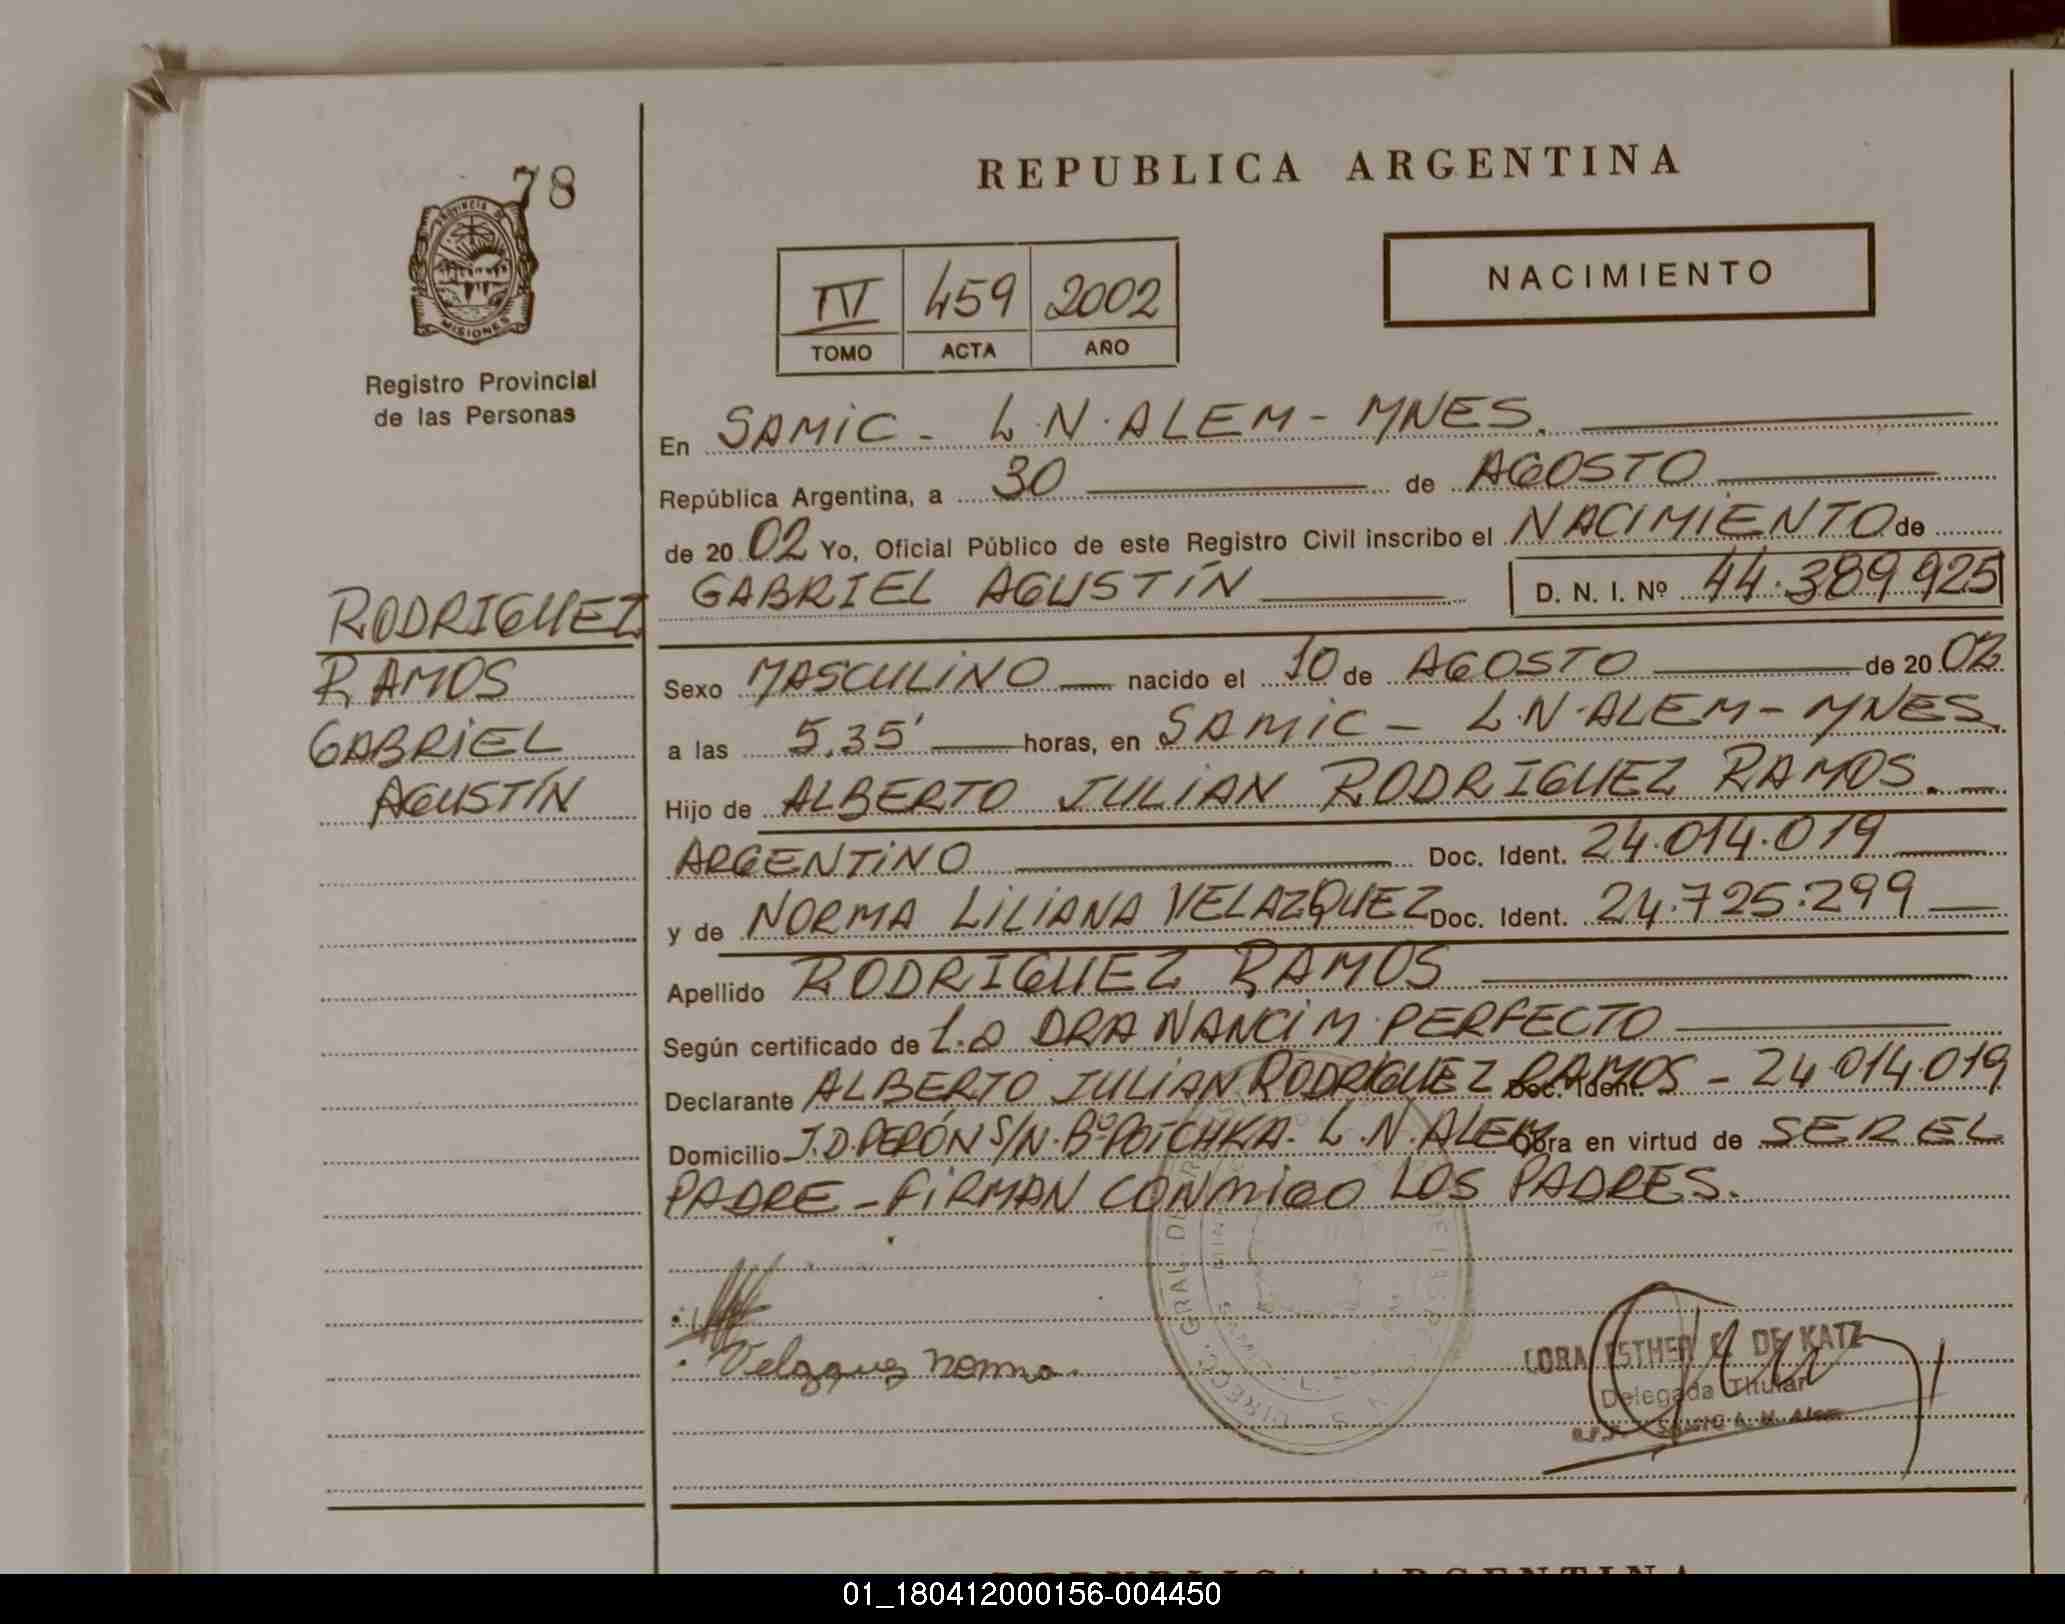 78
PROVINCIA DE
MISIONES
Registro Provincial
de las Personas
RODRIGUEZ
RAMOS
GABRIEL
AGUSTÍN
REPUBLICA ARGENTINA
NACIMIENTO
IV 459 2002
TOMO ACTA AÑO
En SAMIC - L.N. ALEM - MNES.
República Argentina, a 30 de AGOSTO
de 20 02 Yo, Oficial Público de este Registro Civil inscribo el NACIMIENTO de
GABRIEL AGUSTÍN D. N. I. Nº 44.389.925
Sexo MASCULINO nacido el 10 de AGOSTO de 20 02
a las 5,35' horas, en SAMIC - L.N. ALEM - MNES.
Hijo de ALBERTO JULIAN RODRIGUEZ RAMOS.
ARGENTINO Doc. Ident. 24.014.019
y de NORMA LILIANA VELAZQUEZ Doc. Ident. 24.725.299
Apellido RODRIGUEZ RAMOS
Según certificado de DRA NANCI M. PERFECTO
Declarante ALBERTO JULIAN RODRIGUEZ RAMOS Doc. Ident. - 24.014.019
Domicilio J.D. PERÓN S/N. Bº POTCHKA. L.N. ALEM Obra en virtud de SER EL
PADRE - FIRMAN CONMIGO LOS PADRES.
Velazquez Norma.
ESTHER DE KATZ
Delegada Titular
SAMIC L. N. Alem
REPUBLICA ARGENTINA
01_180412000156-004450